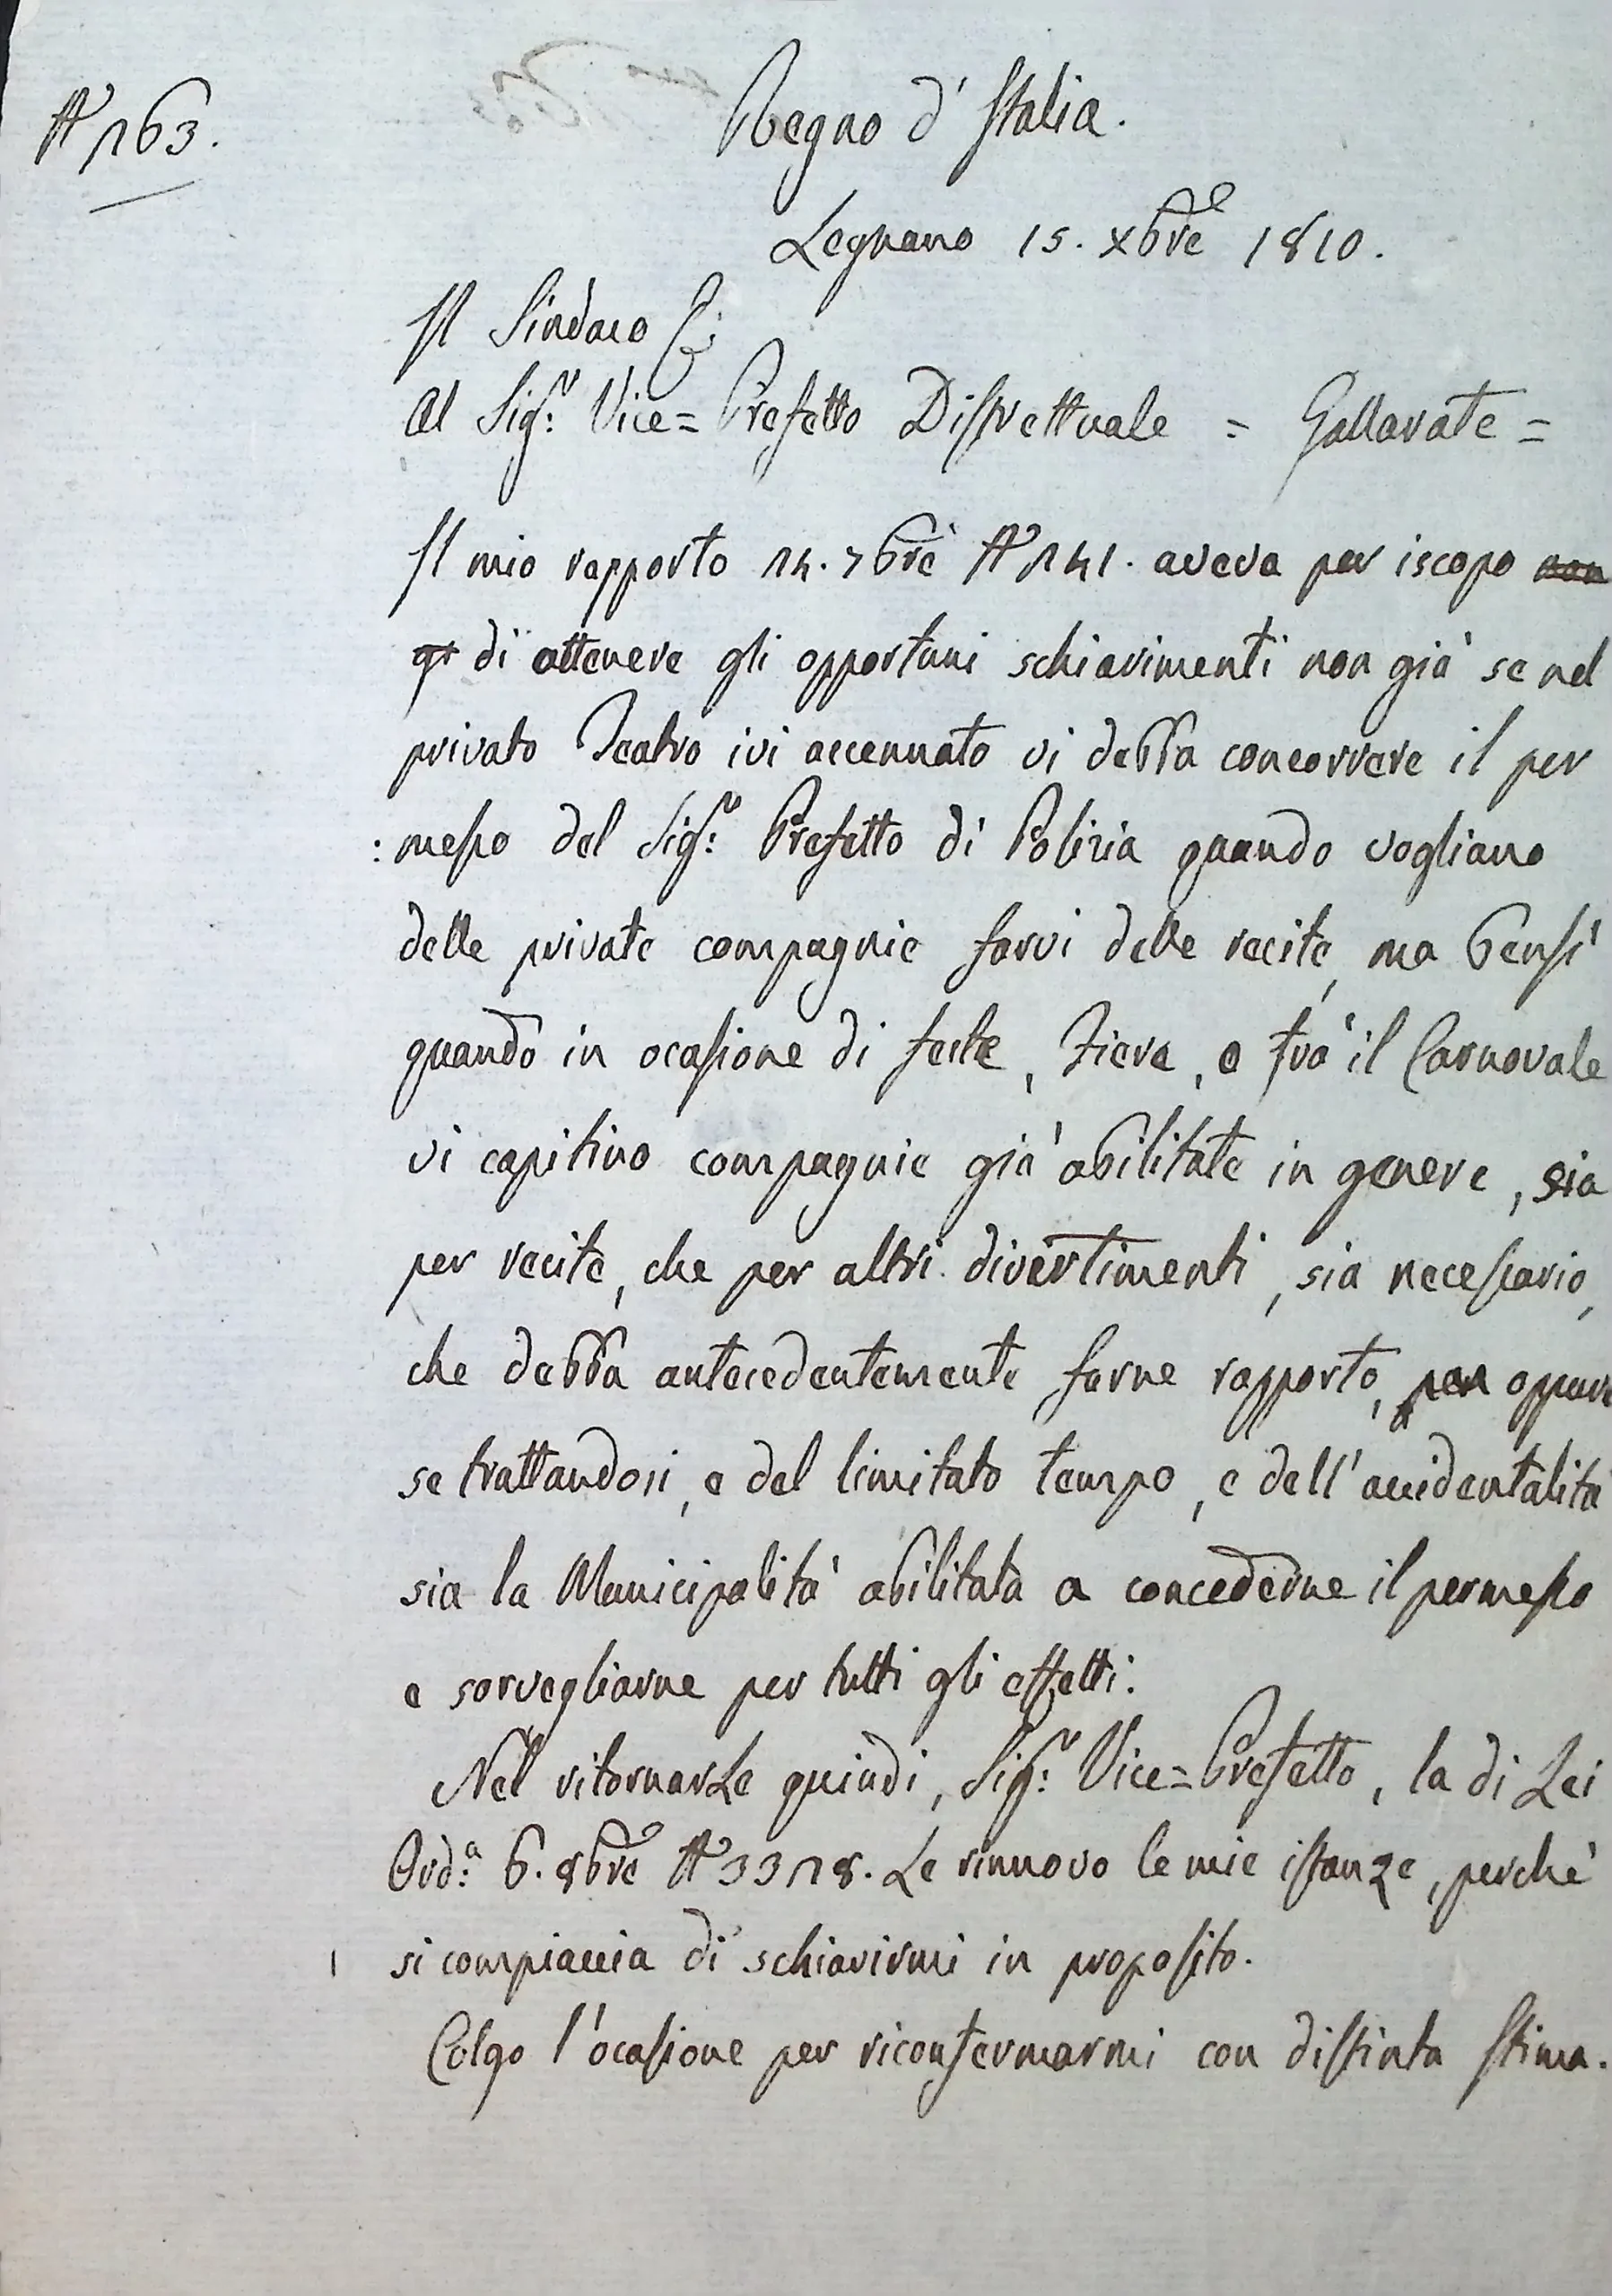 N° 163.
Regno d'Italia.
Legnano 15. xbre 1810.
Il Sindaco
Al Sigr: Vice=Prefetto Distrettuale = Gallarate =
Il mio rapporto 14. 7bre N° 141. aveva per iscopo non
di ottenere gli opportuni schiarimenti non già se nel
privato Teatro ivi accennato vi debba concorrere il per
:messo del Sigr: Prefetto di Polizia quando vogliano
delle private compagnie farvi delle recite, ma bensì
quando in ocasione di feste, Fiere, e frà il Carnovale
vi capitino compagnie già abilitate in genere, sia
per recite, che per altri divertimenti, sia necessario,
che debba antecedentemente farne rapporto, per oppure
se trattandosi, e del limitato tempo, e dell'accidentalità
sia la Municipalità abilitata a concederne il permesso
e sorvegliarne per tutti gli effetti.
Nel ritornarLe quindi, Sigr: Vice=Prefetto, la di Lei
Ord:a 6. 8bre N° 3318. Le rinnovo le mie istanze, perchè
si compiaccia di schiarirmi in proposito.
Colgo l'ocasione per riconfermarmi con distinta stima.